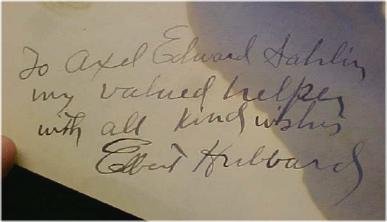 To Axel Edward Sahlin
my valued helper
with all kind wishes
Elbert Hubbard